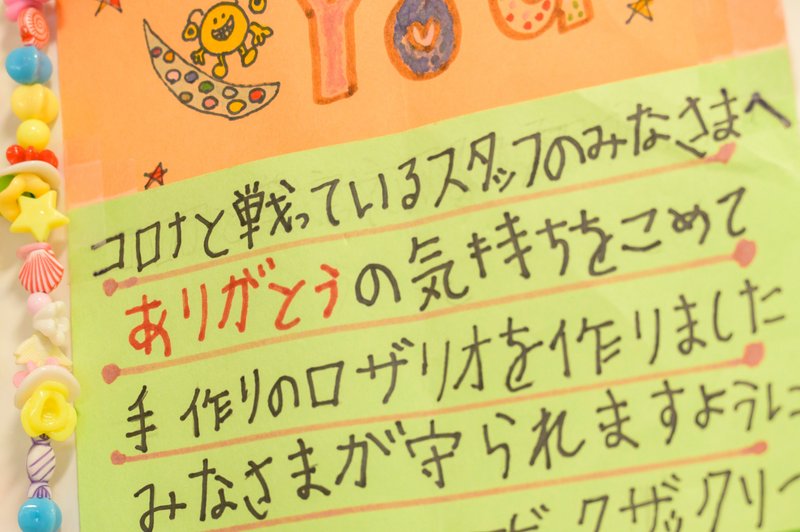 YOU
コロナと戦っているスタッフのみなさまへ
ありがとうの気持ちをこめて
手作りのロザリオを作りました
みなさまが守られますように